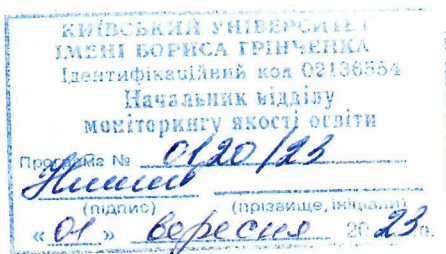 КИЇВСЬКИЙ УНІВЕРСИТЕТ
ІМЕНІ БОРИСА ГРІНЧЕНКА
Ідентифікаційний код 02136554
Начальник відділу
моніторингу якості освіти
Програма № 0120/23
(підпис) (прізвище, ініціали)
« 01 » вересня 2023р.